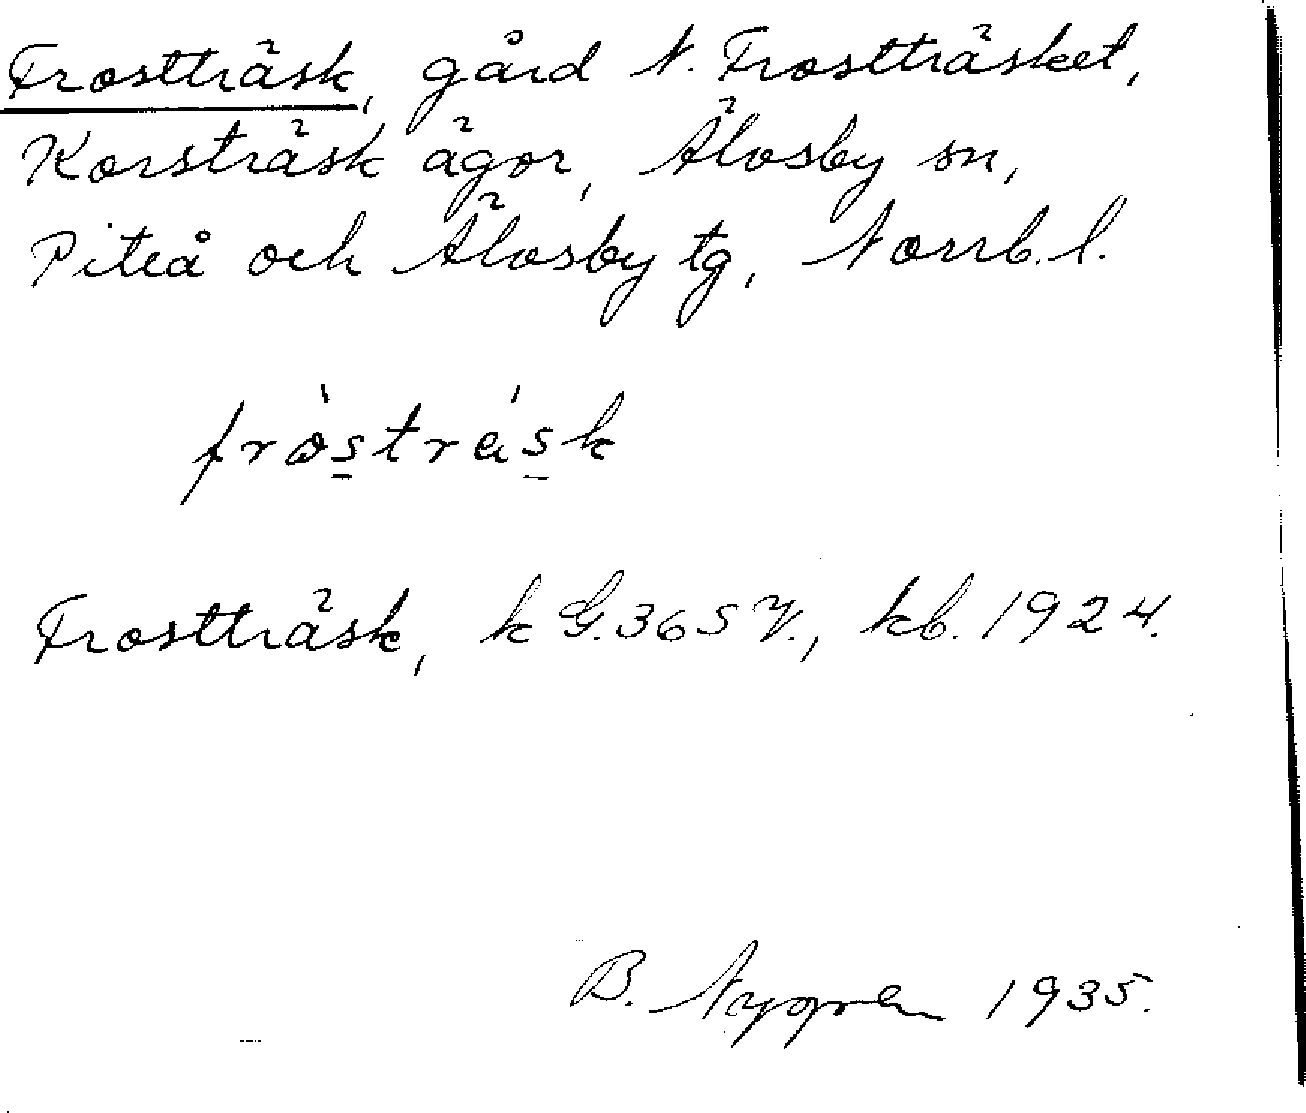 Frostträsk, gård N. Frostträsket,
Korsträsk ägor, Älvsby sn,
Piteå och Älvsby tg, Norrb. l.
fròsträ́sk
Frostträsk, k G. 365 V., kb. 1924.
B. 1935.